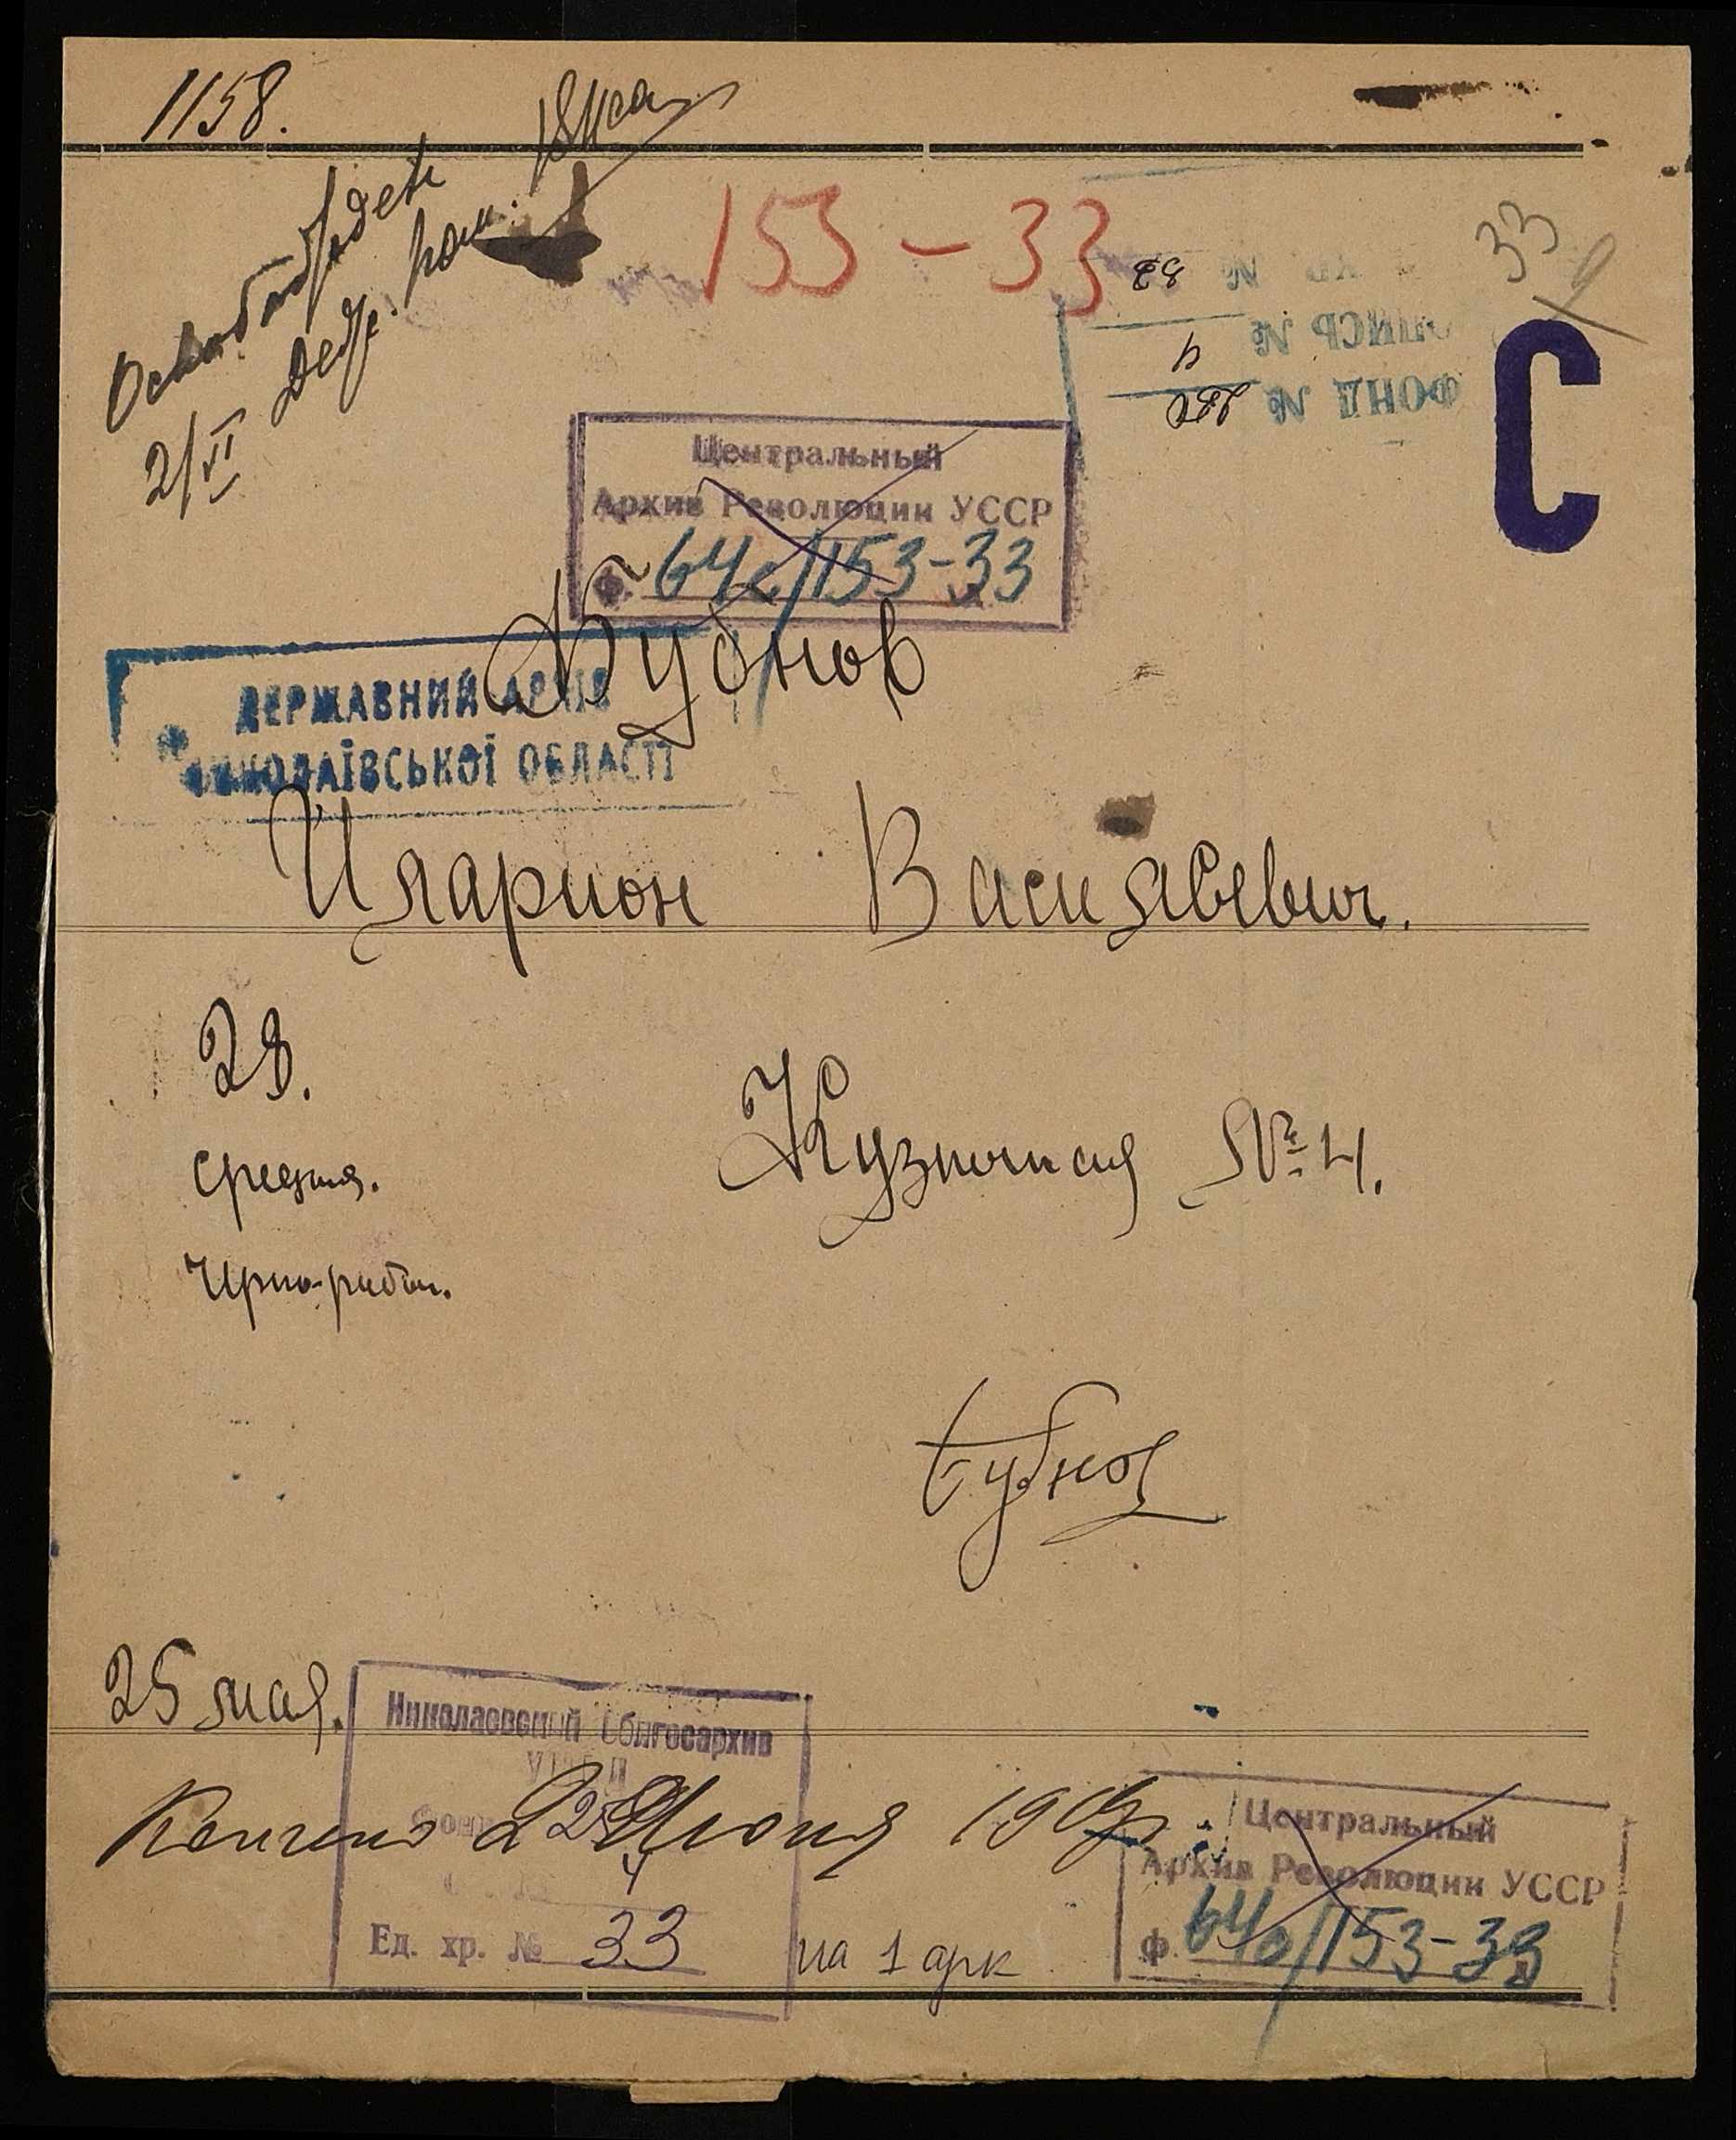 1158.
Освободжден
2/VI Деж. пом.
153-33
33
33
ОПИСЬ № 4
ФОНД №
С
Центральный
Архив Революции УССР
ф. 64с/153-33
Бубнов
ДЕРЖАВНИЙ АРХІВ
МИКОЛАЇВСЬКОЇ ОБЛАСТІ
Иларион Васильевич.
28.
Кузнечная № 4.
средня.
Черно-рабоч.
Бубнов
25 мая.
Николаевский Облгосархив
Фонд 229
4
Ед. хр. № 33
Кончено 2 Июня 19
на 1 арк
Центральный
Архив Революции УССР
ф. 64с/153-33